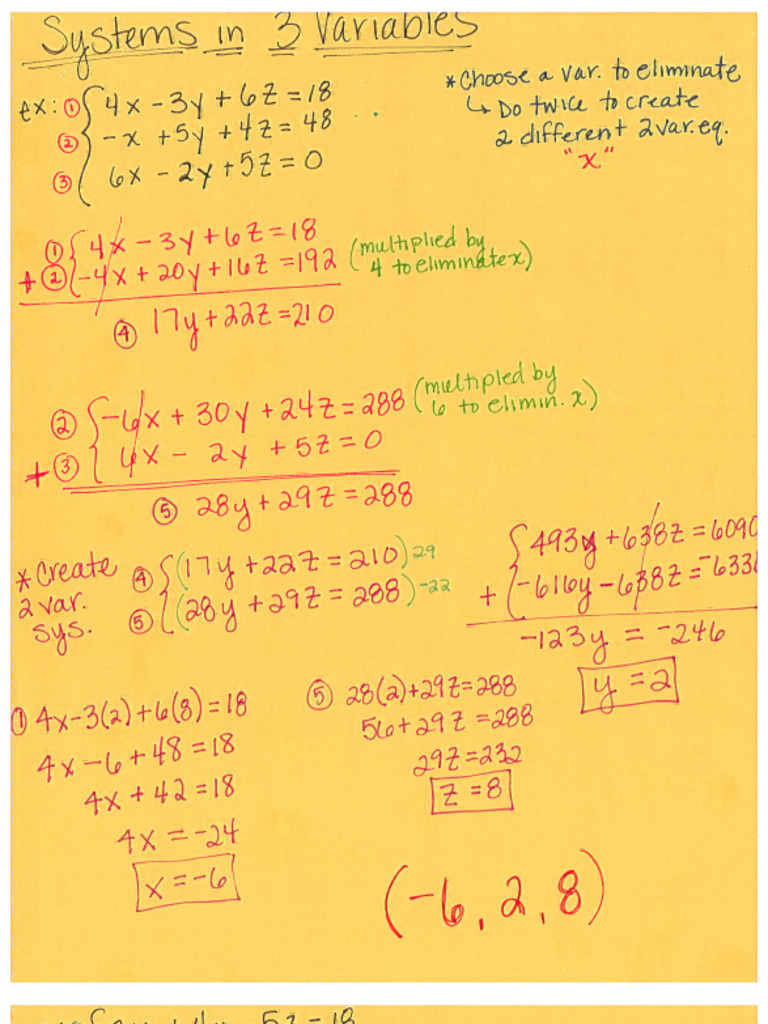 Systems in 3 Variables
ex: ① 4x - 3y + 6z = 18
② -x + 5y + 4z = 48
③ 6x - 2y + 5z = 0
*Choose a var. to eliminate
↳ Do twice to create
2 different 2 var. eq.
"x"
① 4x - 3y + 6z = 18
+ ② -4x + 20y + 16z = 192
(multiplied by
4 to eliminate x)
④ 17y + 22z = 210
② -6x + 30y + 24z = 288
(multipled by
6 to elimin. x)
+ ③ 6x - 2y + 5z = 0
⑤ 28y + 29z = 288
*Create
2 var.
sys.
④ (17y + 22z = 210) 29
⑤ (28y + 29z = 288) -22
493y + 638z = 6090
+ -616y - 638z = -6336
-123y = -246
y = 2
⑤ 28(2) + 29z = 288
56 + 29z = 288
29z = 232
z = 8
① 4x - 3(2) + 6(8) = 18
4x - 6 + 48 = 18
4x + 42 = 18
4x = -24
x = -6
(-6, 2, 8)
5z = 18